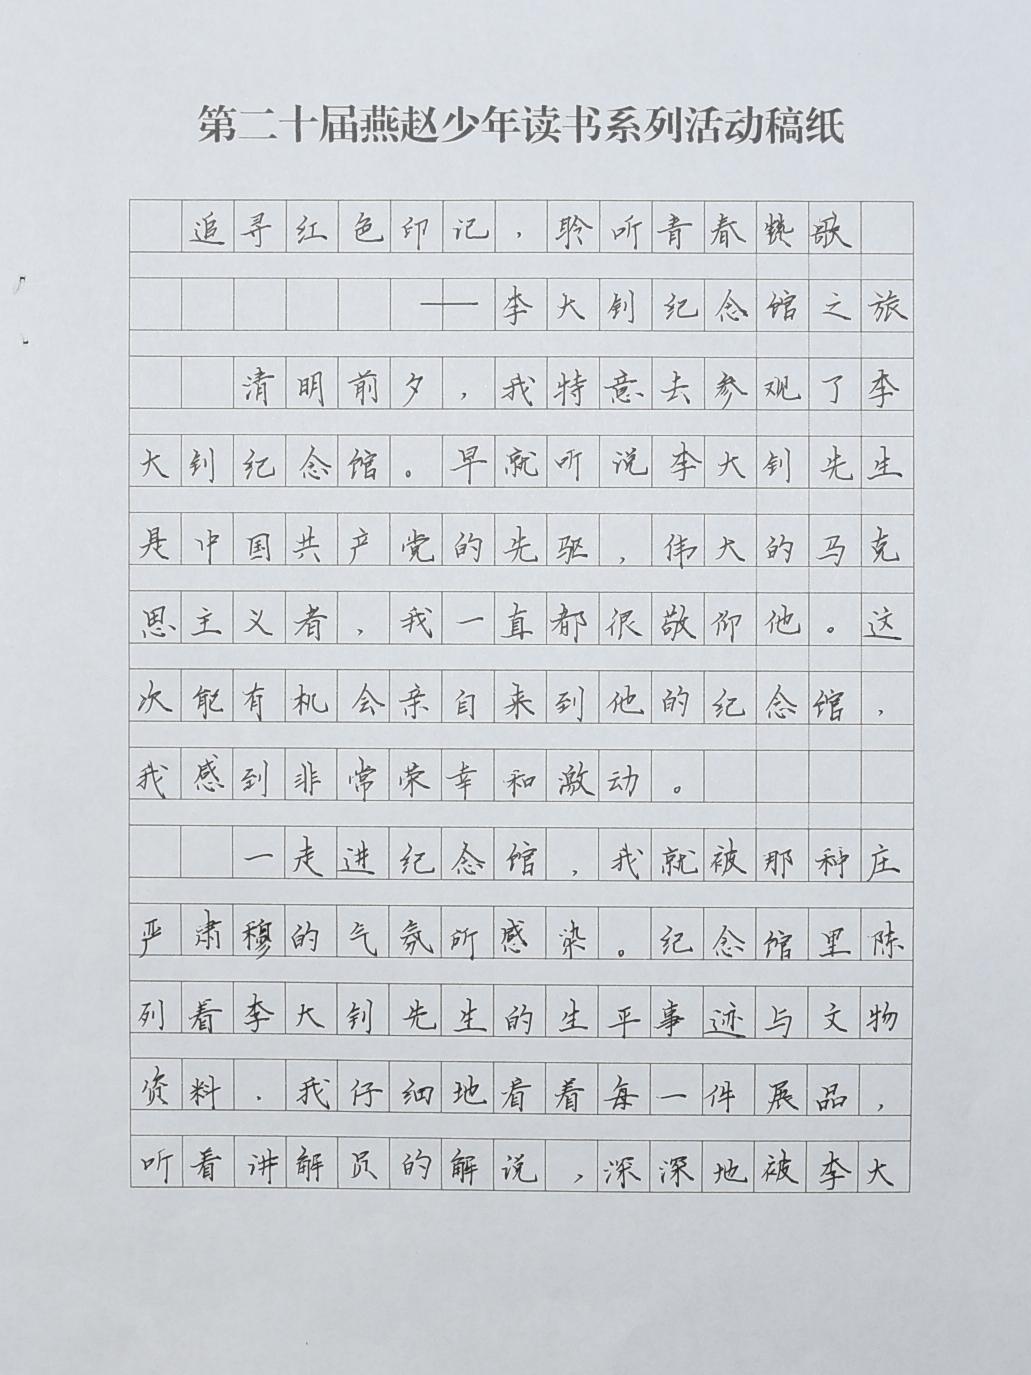 第二十届燕赵少年读书系列活动稿纸
追寻红色印记，聆听青春赞歌
——李大钊纪念馆之旅
清明前夕，我特意去参观了李
大钊纪念馆。早就听说李大钊先生
是中国共产党的先驱，伟大的马克
思主义者，我一直都很敬仰他。这
次能有机会亲自来到他的纪念馆，
我感到非常荣幸和激动。
一走进纪念馆，我就被那种庄
严肃穆的气氛所感染。纪念馆里陈
列着李大钊先生的生平事迹与文物
资料．我仔细地看着每一件展品，
听着讲解员的解说，深深地被李大